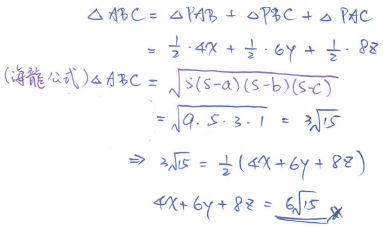 △ABC = △PAB + △PBC + △PAC
= 1/2 · 4x + 1/2 · 6y + 1/2 · 8z
(海龍公式) △ABC = √(s(s-a)(s-b)(s-c))
= √(9.5.3.1) = 3√15
⇒ 3√15 = 1/2 (4x + 6y + 8z)
4x + 6y + 8z = 6√15